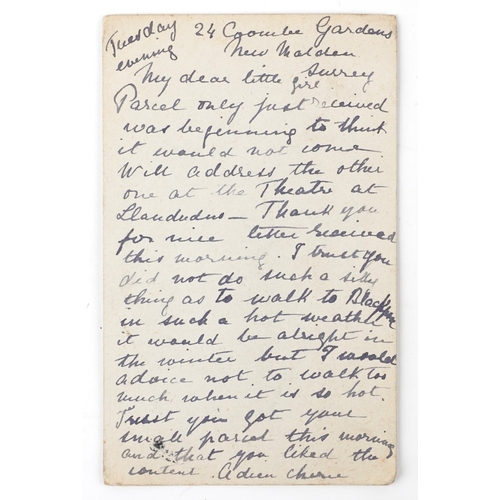 Tuesday evening
24 Coombe Gardens
New Malden
Surrey
My dear little girl
Parcel only just received
was beginning to think
it would not come.
Will address the other
one at the Theatre at
Llandudno — Thank you
for nice letter received
this morning. I trust you
did not do such a silly
thing as to walk to Blackpool
in such a hot weather
it would be alright in
the winter but I would
advice not to walk too
much when it is so hot.
Trust you got your
small parcel this morning
and that you liked the
content. adieu cherie